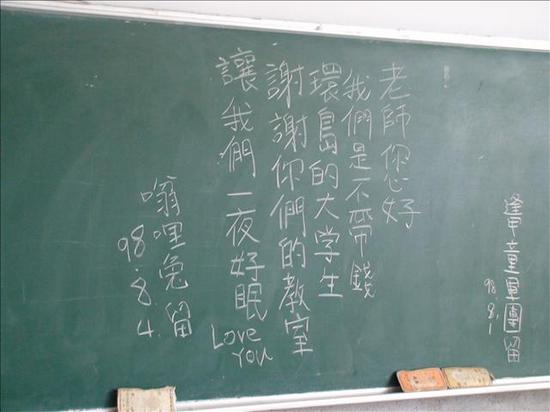 逢甲童軍團留
98.8.1
老師您好
我們是不帶錢
環島的大学生
謝謝你們的教室
讓我們一夜好眠
Love
You
嗡哩兔留
98.8.4.